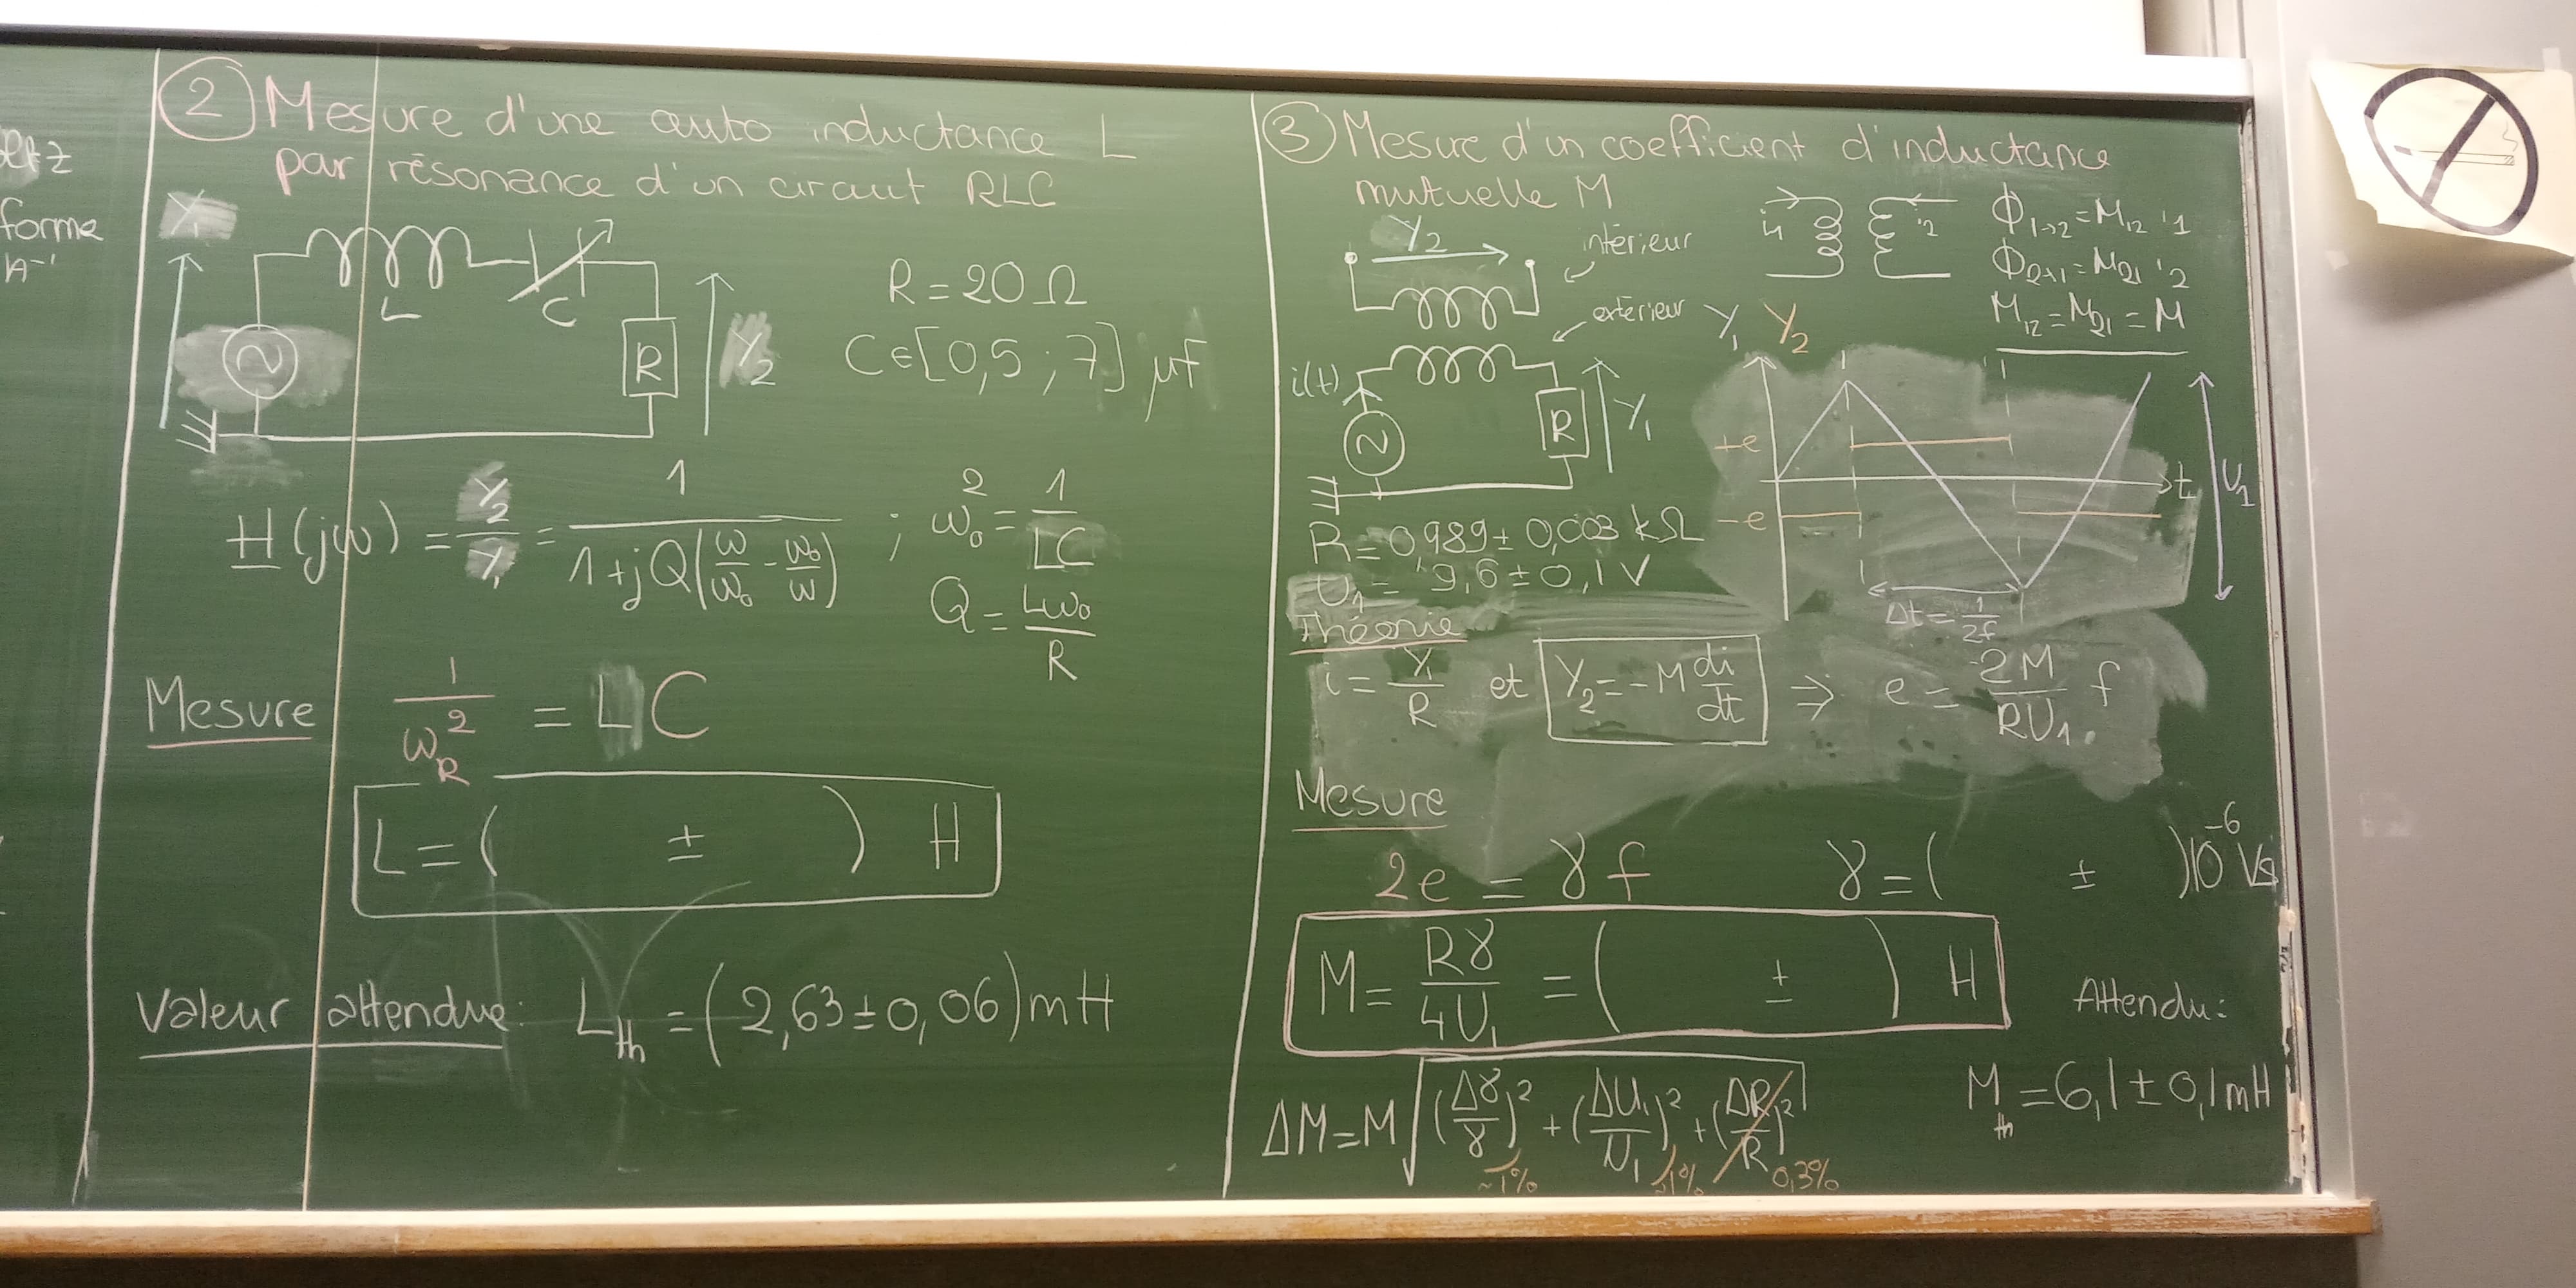 ② Mesure d'une auto inductance L
par résonance d'un circuit RLC
Y₁
L
C
R
Y₂
R = 20 Ω
C ∈ [0,5 ; 7] μf
H(jω) = Y₂/Y₁ = 1/(1+jQ(ω/ω₀ - ω₀/ω)) ; ω₀² = 1/LC
Q = Lω₀/R
Mesure 1/ω_R² = LC
L = ( ± ) H
Valeur attendue: L_th = (2,63 ± 0,06) mH
forme
A⁻¹
③ Mesure d'un coefficient d'inductance
mutuelle M
Y₂
intérieur
extérieur
i(t)
R
Y₁
i₁
i₂
Φ₁→₂ = M₁₂ i₁
Φ₂→₁ = M₂₁ i₂
M₁₂ = M₂₁ = M
Y₁ Y₂
+e
-e
t
U₁
Δt = 1/2f
R = 0,989 ± 0,003 kΩ
U₁ = 9,6 ± 0,1 V
Théorie
i = Y₁/R et Y₂ = -M di/dt ⇒ e = 2M/RU₁ . f
Mesure
2e = γ f γ = ( ± ) 10⁻⁶ Vs
M = Rγ/4U₁ = ( ± ) H
Attendu:
M_th = 6,1 ± 0,1 mH
ΔM = M √((Δγ/γ)² + (ΔU₁/U₁)² + (ΔR/R)²)
~1% ~1% 0,3%